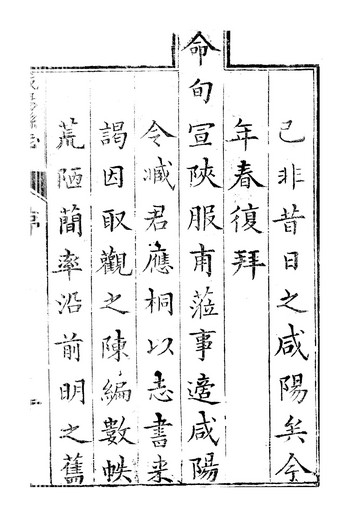 已非昔日之咸陽矣今
年春復拜
命旬宣陝服甫蒞事適咸陽
令臧君應桐以志書來
謁因取觀之陳編數帙
荒陋簡率沿前明之舊